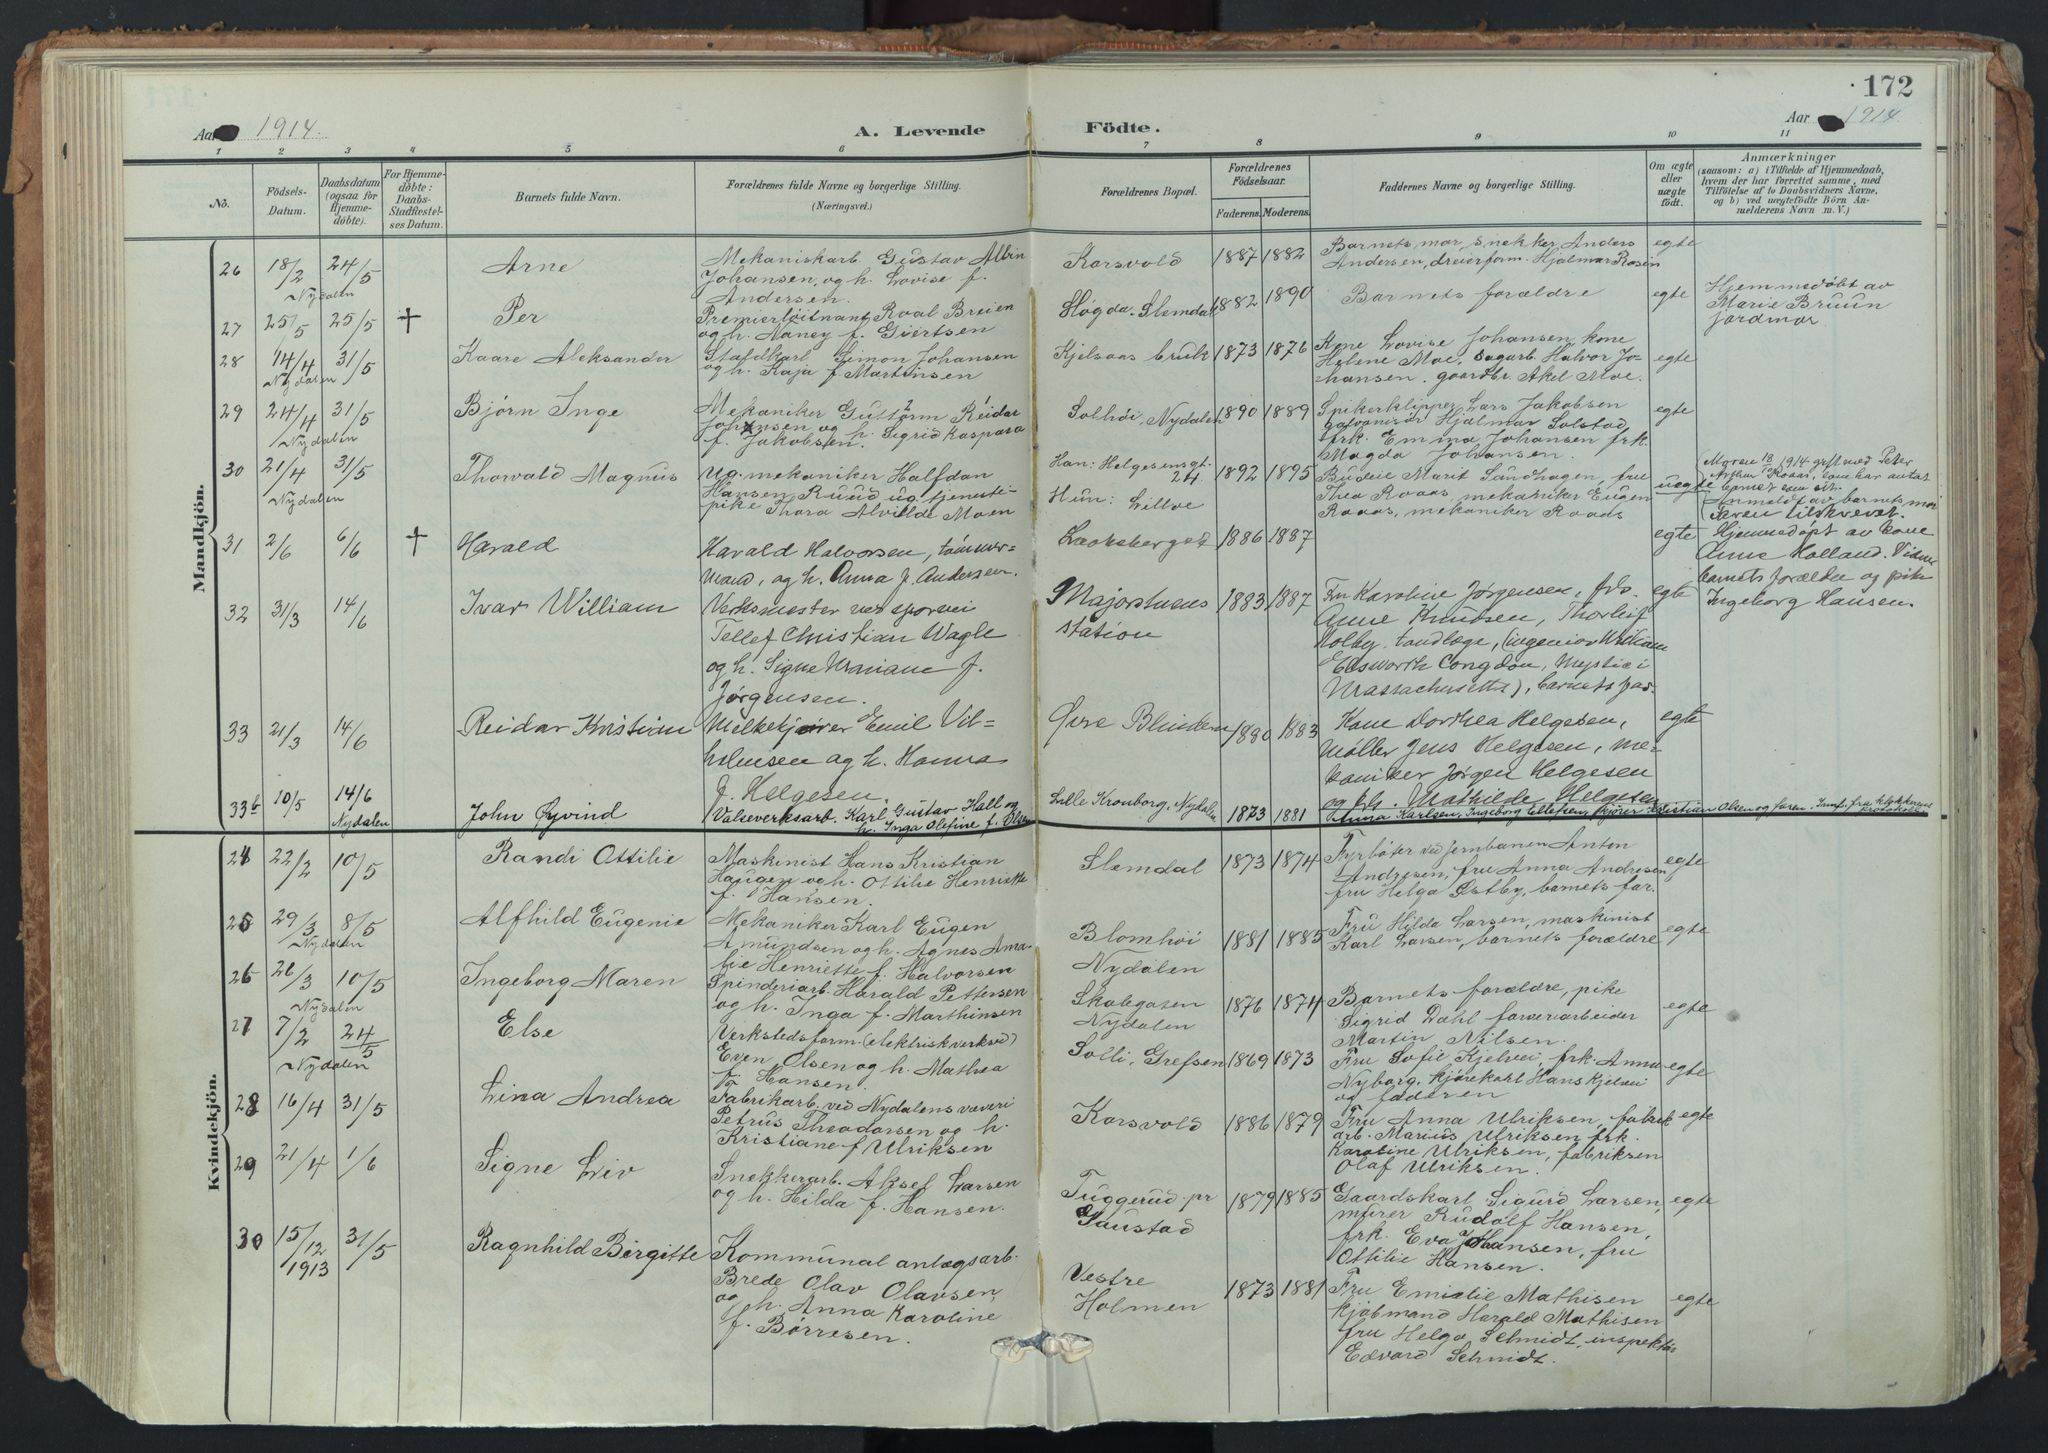 172
Aar 1914.
A. Levende Födte.
Aar 1914
1 2 3 4 5 6 7 8 9 10 11
No.
Födsels-Datum.
Daabsdatum (ogsaa for Hjemme-döbte).
For Hjemme-döbte: Daabs-Stadfæstel-ses Datum.
Barnets fulde Navn.
Forældrenes fulde Navne og borgerlige Stilling.
(Næringsvei.)
Forældrenes Bopæl.
Forældrenes Födselsaar.
Faderens. Moderens.
Faddernes Navne og borgerlige Stilling.
Om ægte eller uægte födt.
Anmærkninger
(saasom: a) i Tilfælde af Hjemmedaab, hvem der har forrettet samme, med Tilföielse af to Daabsvidners Navne, og b) ved uægtefödte Börn An-melderens Navn m. V.)
Mandkjön.
26 18/2 24/5 Arne
Nydalen
Mekaniskarb. Gustav Albin
Johansen, og h. Lovise f.
Andersen.
Korsvold 1887 1882
Barnets mor, snekker Anders
Andersen, dreierform. Hjalmar Rosén
egte
27 25/5 25/5 + Per
Premierløitnant Roal Breien
og h. Nancy f. Giertsen
Høgda. Slemdal 1882 1890
Barnets forældre
egte
Hjemmedøbt av
Marie Bruun
jordmor
28 14/4 31/5 Kaare Aleksander
Nydalen
Staldkarl Simon Johansen
og h. Kaja f. Martinsen
Kjelsaas bruk 1873 1876
Kone Lovise Johansen, kone
Helene Moe, sagarb. Halvor Jo-
hansen. gaardbr. Akel Moe.
egte
29 24/4 31/5 Bjørn Inge
Nydalen
Mekaniker Guttorm Reidar
Johansen og h. Sigrid Kaspara
f. Jakobsen.
Solhøi, Nydalen 1890 1889
Spikerklipper Lars Jakobsen
galvanisør Hjalmar Solstad,
frk. Emma Johansen frk.
Magda Johansen.
egte
30 21/4 31/5 Thorvald Magnus
Nydalen
Ug. mekaniker Halfdan
Hansen Ruud ug. tjenesti-
pike Thora Alvilde Moen
Han: Helgesensgt. 24.
Hun: Lilloe
1892 1895
Budeie Marit Sundhagen, fru
Thea Roaas, mekaniker Eugen
Roaas, mekaniker Roaas
uegte
Moren 1914 gift med Peter
Arthur Roaas, som har antat
barnet som sit.
Anmeldt av barnets mor
31 2/6 6/6 + Harald
Harald Halvorsen, tömmer-
mand, og h. Anna f. Andersen.
1886 1887
egte
Hjemmedøpt av kone
Anne Holland. Vidne
barnets forældre og pike
Ingeborg Hansen.
32 31/3 14/6 Ivar William
Verksmester ved sporvei
Tellef Christian Wagle
og h. Signe Mariane f.
Jørgensen.
Majorstuens
station
1883 1887
Fru Karoline Jørgensen, frk.
Anne Knudsen, Thorleif
Holby, tandlæge, (ingeniør William
Elsworth Congdon, Mystic i
Massachusetts), barnets far.
egte
33 21/3 14/6 Reidar Kristian
Melkekjører Emil Vil-
helmsen og h. Hanna
f. Helgesen.
Øvre Blindern 1880 1883
Kone Dorthea Helgesen,
Møller Jens Helgesen, me-
kaniker Jørgen Helgesen
og frk. Mathilde Helgesen
egte
33b 10/5 14/6 John Øyvind
Nydalen
Valseverksarb. Karl Gustav Hall og
h. Inga Olefine f. Olsen
Lille Kronborg, Nydalen 1873 1881
Anna Karlsen, Ingeborg Ellefsen, kjører Kristian Olsen og faren. Innf. fra klokkerens
protokol.
Kvindekjön.
24 22/2 10/5 Randi Ottilie
Maskinist Hans Kristian
Haugen og h. Ottilie Henriette
f. Hansen.
Slemdal 1873 1874
Fyrbøter ved jernbanen Anton
Andresen, fru Anna Andresen
fru Helga Østby, barnets far.
egte
25 29/3 8/5 Alfhild Eugenie
Nydalen
Mekaniker Karl Eugen
Amundsen og h. Agnes Ama-
lie Henriette f. Halvorsen
Blomhøi
Nydalen
1881 1885
Fru Hilda Larsen, maskinist
Karl Larsen, barnets forældre
egte
26 26/3 10/5 Ingeborg Maren
Nydalen
Spinderiarb. Harald Pettersen
og h. Inga f. Marthinsen
Skolegaten
Nydalen
1876 1874
Barnets forældre, pike
Sigrid Dahl farveriarbeider
Martin Nilsen.
egte
27 7/2 24/5 Else
Nydalen
Verkstedsform. (elektriskverksted)
Even Olsen og h. Mathea
f. Hansen.
Solli, Grefsen 1869 1873
Fru Sofie Kjelvei, frk. Anna
Nyborg, kjørekarl Hans Kjelvei
og faderen
egte
28 16/4 31/5 Lina Andrea
Fabrikarb. ved Nydalens væveri
Petrus Theodorsen og h.
Kristiane f. Ulriksen
Korsvold 1886 1879
Fru Anna Ulriksen, fabrik
arb. Marius Ulriksen frk.
Karoline Ulriksen, fabriksen
Olaf Ulriksen.
egte
29 21/4 1/6 Signe Liv
Snekkerarb. Aksel Larsen
og h. Hilda f. Hansen.
Tuggerud pr
Gaustad
1879 1885
Gaardskarl Sigurd Larsen,
murer Rudolf Hansen,
frk. Eva Hansen, fru
Ottilie Hansen.
egte
30 15/12 1913 31/5 Ragnhild Birgitte
Kommunal anlægsarb.
Brede Olav Olavsen,
og h. Anna Karoline
f. Børresen.
Vestre
Holmen
1873 1881
Fru Emilie Mathisen
kjøbmand Harald Mathisen
fru Helga Schmidt, inspektør
Edvard Schmidt.
egte